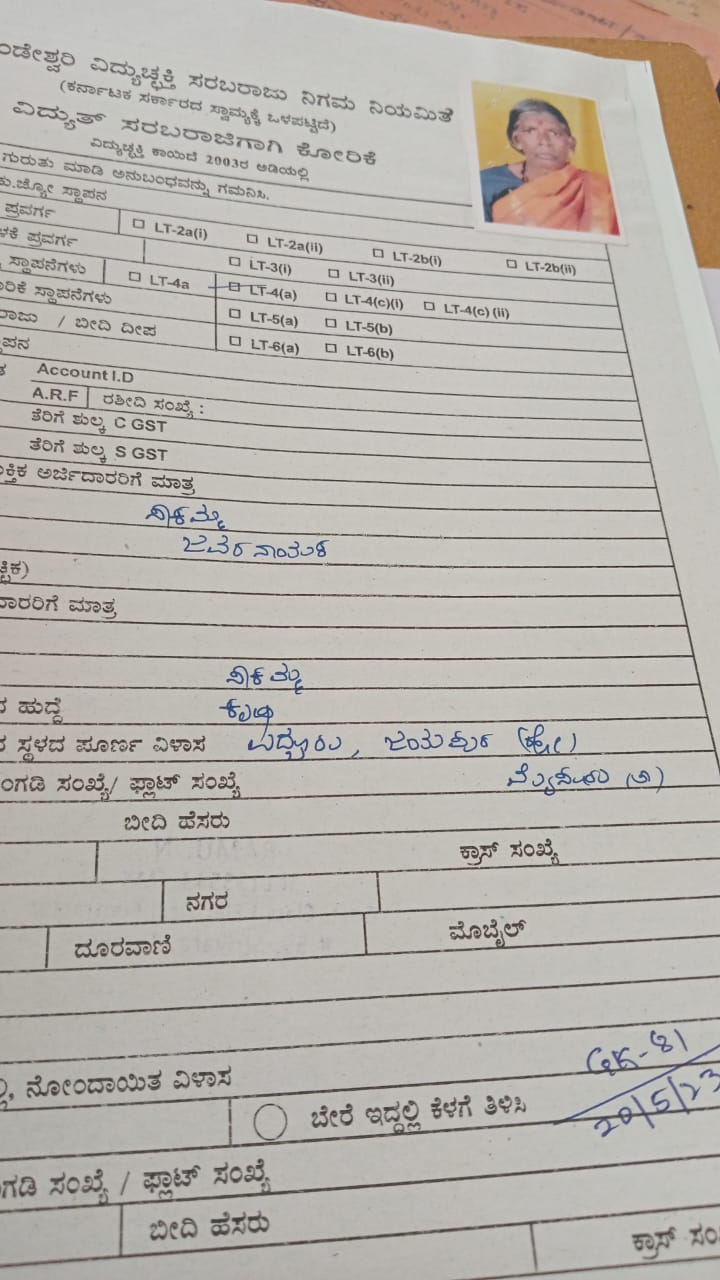 ಂಡೇಶ್ವರಿ ವಿದ್ಯುಚ್ಛಕ್ತಿ ಸರಬರಾಜು ನಿಗಮ ನಿಯಮಿತ
(ಕರ್ನಾಟಕ ಸರ್ಕಾರದ ಸ್ವಾಮ್ಯಕ್ಕೆ ಒಳಪಟ್ಟಿದೆ)
ವಿದ್ಯುತ್ ಸರಬರಾಜಿಗಾಗಿ ಕೋರಿಕೆ
ವಿದ್ಯುಚ್ಛಕ್ತಿ ಕಾಯಿದೆ 2003ರ ಅಡಿಯಲ್ಲಿ
ಗುರುತು ಮಾಡಿ ಅನುಬಂಧವನ್ನು ಗಮನಿಸಿ.
ಕು.ಜ್ಯೋ ಸ್ಥಾಪನ
ಪ್ರವರ್ಗ LT-2a(i) LT-2a(ii) LT-2b(i) LT-2b(ii)
ಳಕೆ ಪ್ರವರ್ಗ LT-3(i) LT-3(ii)
ಸ್ಥಾಪನೆಗಳು LT-4a LT-4(a) LT-4(c)(i) LT-4(c)(ii)
ಾರಿಕೆ ಸ್ಥಾಪನೆಗಳು LT-5(a) LT-5(b)
ರಾಜು / ಬೀದಿ ದೀಪ LT-6(a) LT-6(b)
ಾಪನ
Account I.D
A.R.F ರಶೀದಿ ಸಂಖ್ಯೆ :
ತೆರಿಗೆ ಶುಲ್ಕ C GST
ತೆರಿಗೆ ಶುಲ್ಕ S GST
ಕ್ತಿಕ ಅರ್ಜಿದಾರರಿಗೆ ಮಾತ್ರ
ಚ್ಛಿಕ)
ದಾರರಿಗೆ ಮಾತ್ರ
ಹುದ್ದೆ
ಸ್ಥಳದ ಪೂರ್ಣ ವಿಳಾಸ
ಂಗಡಿ ಸಂಖ್ಯೆ/ ಫ್ಲಾಟ್ ಸಂಖ್ಯೆ
ಬೀದಿ ಹೆಸರು
ಕ್ರಾಸ್ ಸಂಖ್ಯೆ
ನಗರ
ದೂರವಾಣಿ ಮೊಬೈಲ್
ನೋಂದಾಯಿತ ವಿಳಾಸ
ಬೇರೆ ಇದ್ದಲ್ಲಿ ಕೆಳಗೆ ತಿಳಿಸಿ
20/5/23
ಗಡಿ ಸಂಖ್ಯೆ / ಫ್ಲಾಟ್ ಸಂಖ್ಯೆ
ಬೀದಿ ಹೆಸರು
ಕ್ರಾಸ್ ಸಂ